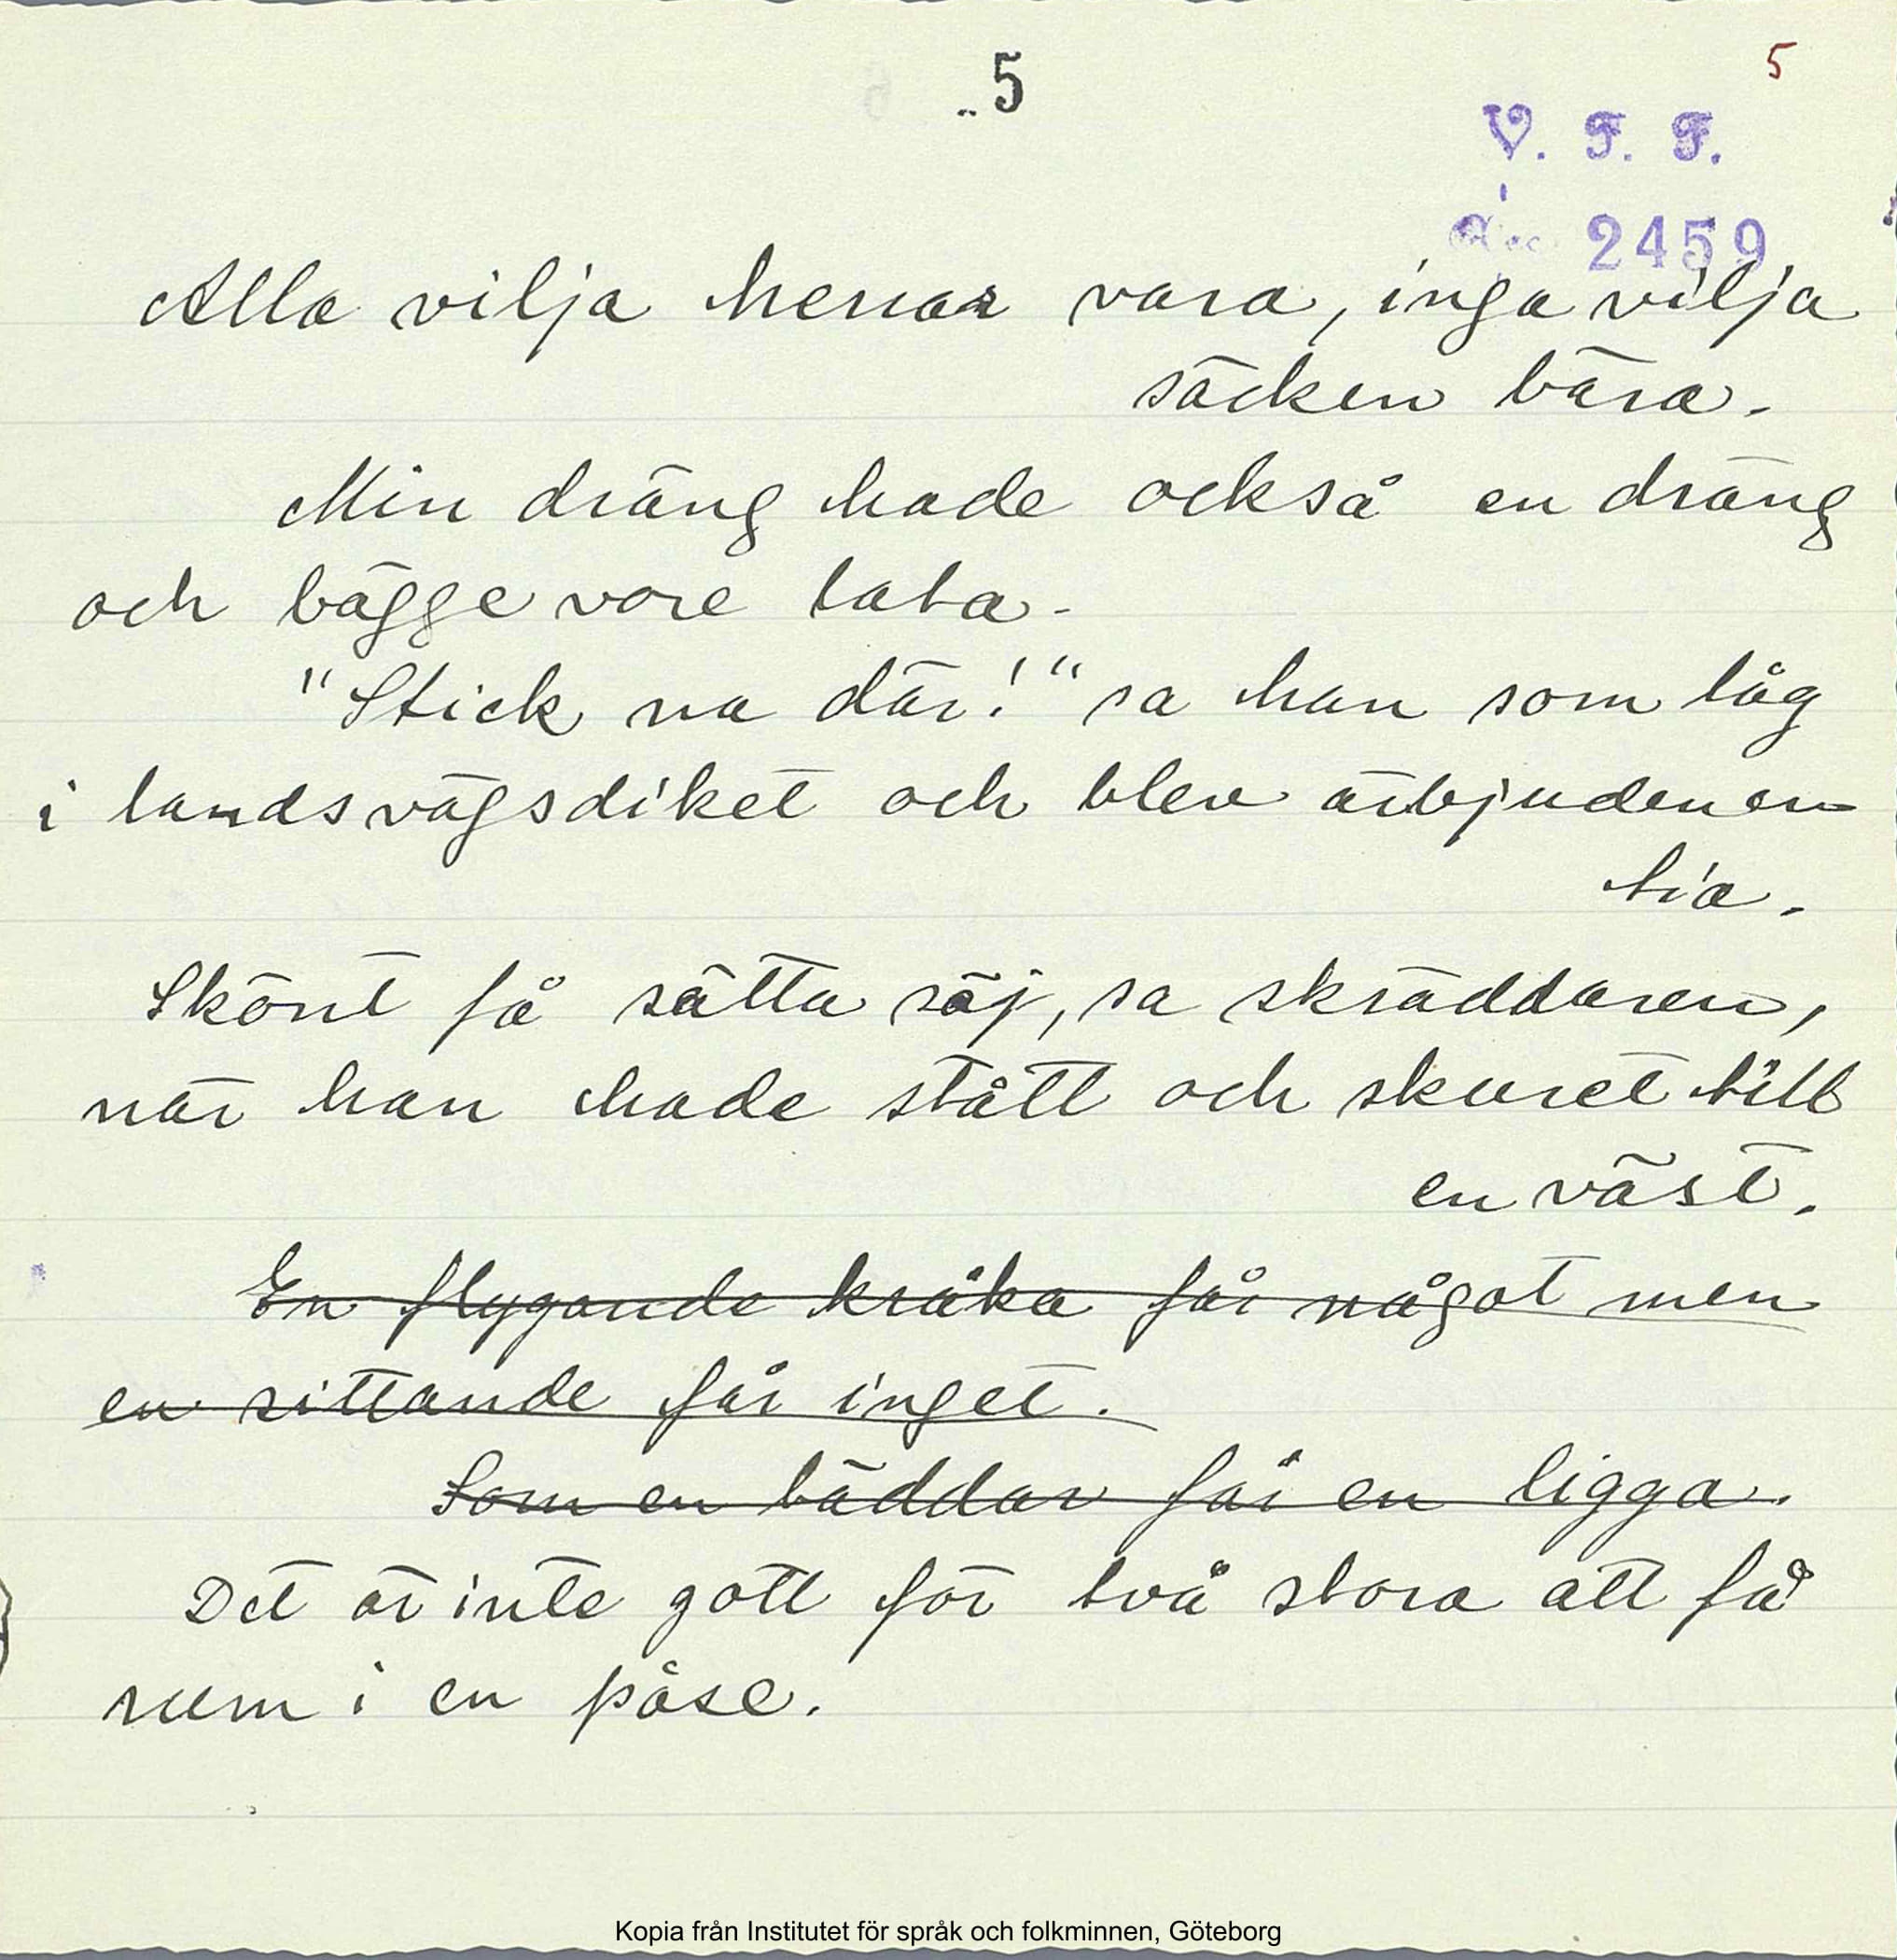 5
5
V. F. F.
Acc. 2459
Alla vilja herrar vara, inga vilja
säcken bära.
Min dräng hade också en dräng
och bägge vore lata.
"Stick na där!" sa han som låg
i landsvägsdiket och blev ärbjuden en
tia.
Skönt få sätta säj, sa skräddaren,
när han hade stått och skuret till
en väst.
En flygande kråka får något men
en sittande får inget.
Som en bäddar får en ligga.
Det är inte gott för två stora att få
rum i en påse.
Kopia från Institutet för språk och folkminnen, Göteborg